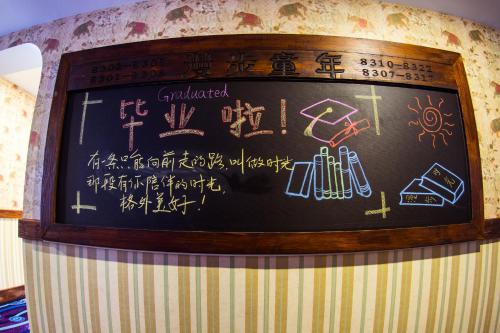 8302-8308
8301-8305
漫步童年
8310-8322
8307-8317
Graduated
毕业啦!
有一条只能向前走的路,叫做时光
那段有你陪伴的时光,
格外美好!